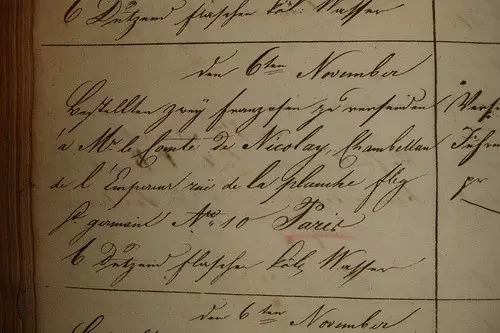 6 Dutzend flaschen köl: Wasser
den 6ten November
Bestellten zwey franzosen zu versenden
à Mr le Comte de Nicolay, Chambellan
de l'Empereur rüe de la planche fbg
St germain Nro 10 Paris
6 Dutzend flaschen köln. Wasser
den 6ten November